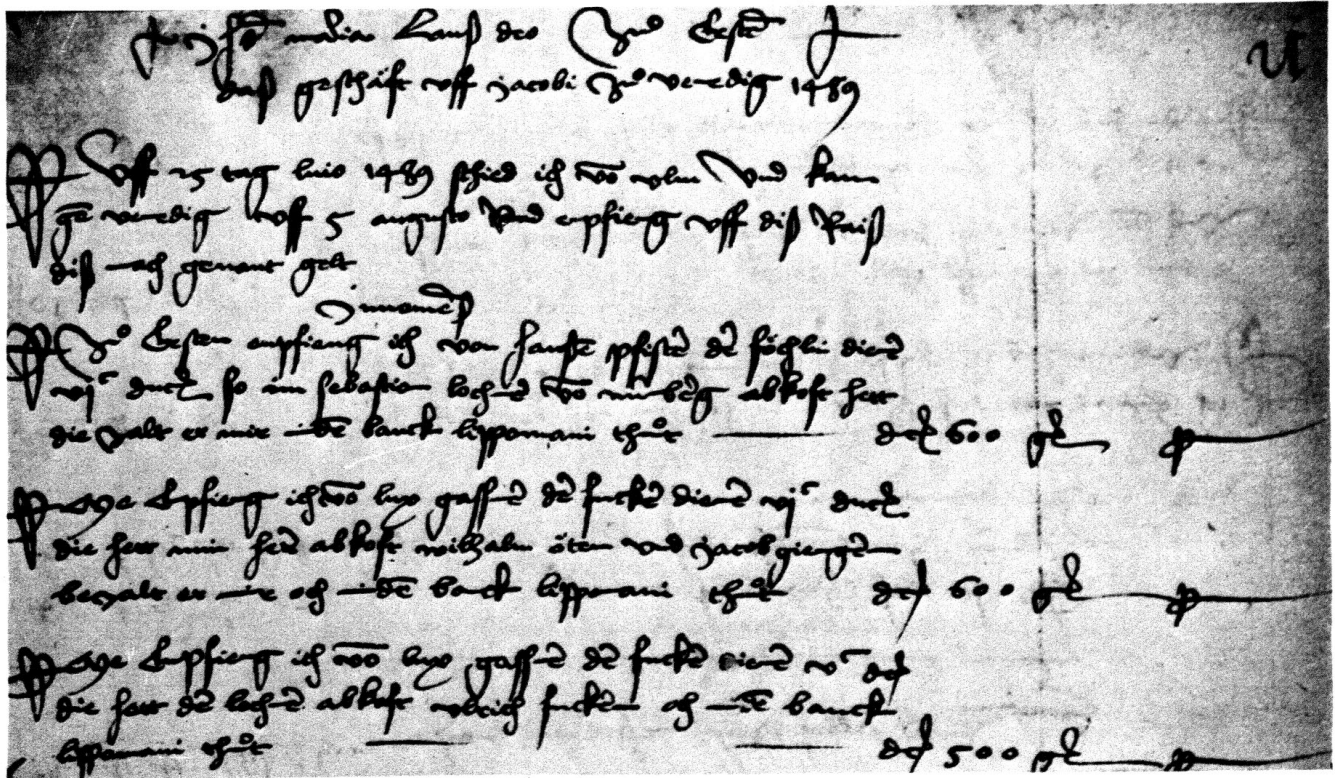 maria Lauß deo Zuͦ Erstē
daß geschäft uff jacobi Zuͦ venedig 1489
Uff 25 tag luio 1489 schied ich vō ulm Vnd kam
gē venedig uff 5 augusto Vnd enpfieng uff diß Raiß
diß nach genant gelt
Innemē
Zuͦ Ersten enpfieng ich von hansē pfistē dē dienē
vjᶜ duct so im sebastian lochnē vō nürnbēg abkoft hett
die zalt er mir indē banck lippomani thuͦt dct 600 gl
Enpfieng ich vō lux gassnē dē fuckē dienē vjᶜ duct
die hett min herē abkoft wilhalm öten vnd jacob giengē
bezalt er mir och indē banck lippomani thuͦt dct 600 gl
Enpfieng ich vō lux gassnē dē fuckē dienē vᶜ dct
die hett dē lochnē abkoft ulrich fuckē och indē banck
lippomani thuͦt dct 500 gl